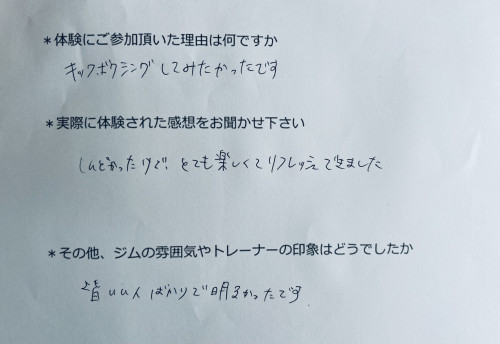 ＊体験にご参加頂いた理由は何ですか
キックボクシングしてみたかったです
＊実際に体験された感想をお聞かせ下さい
しんどかったけど、とても楽しくてリフレッシュできました
＊その他、ジムの雰囲気やトレーナーの印象はどうでしたか
皆いい人ばかりで明るかったです